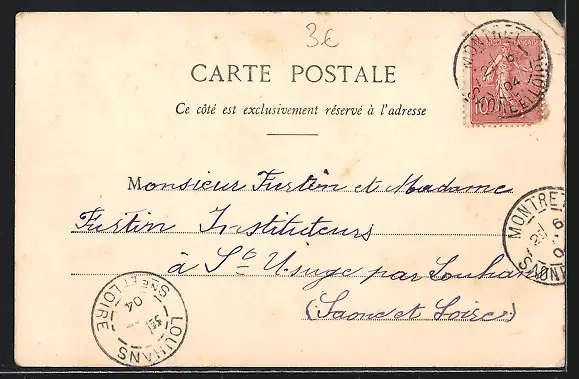 3€
CARTE POSTALE
Ce côté est exclusivement réservé à l'adresse
MONTRET
SAONE ET LOIRE
04
10
Monsieur Furtin et Madame
Furtin Instituteurs
à St Usuge par Louhans
(Saone et Loire)
MONTRET
SAONE
LOUHANS
SNE ET LOIRE
04